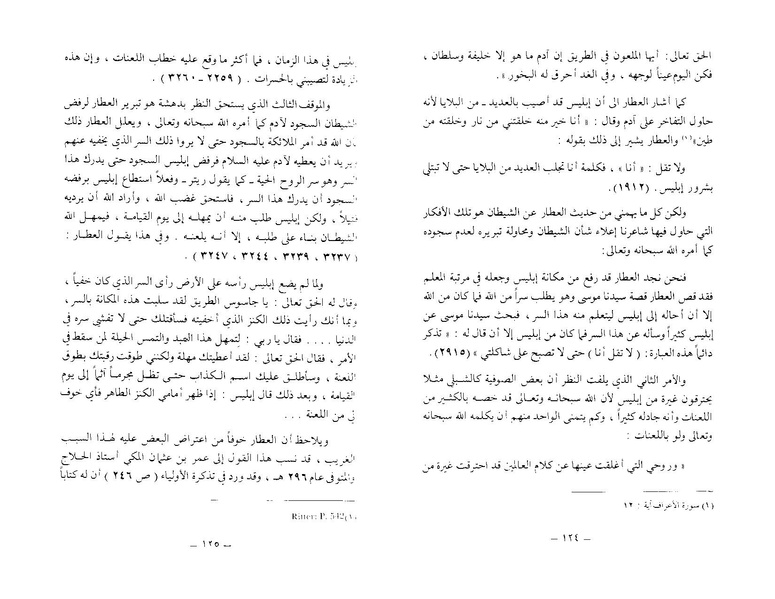 الحق تعالى: أيها الملعون في الطريق إن آدم ما هو إلا خليفة وسلطان ،
فكن اليوم عيناً لوجهه ، وفي الغد أحرق له البخور » .
كما أشار العطار الى أن إبليس قد أصيب بالعديد ـ من البلايا لأنه
حاول التفاخر على آدم وقال : « أنا خير منه خلقتني من نار وخلقته من
طين »(١) والعطار يشير إلى ذلك بقوله :
ولا تقل : « أنا » ، فكلمة أنا تجلب العديد من البلايا حتى لا تبتلي
بشرور إبليس . (١٩١٢) .
ولكن كل ما يهمني من حديث العطار عن الشيطان هو تلك الأفكار
التي حاول فيها شاعرنا إعلاء شأن الشيطان ومحاولة تبريره لعدم سجوده
كما أمره الله سبحانه وتعالى:
فنحن نجد العطار قد رفع من مكانة إبليس وجعله في مرتبة المعلم
فقد قص العطار قصة سيدنا موسى وهو يطلب سراً من الله فما كان من الله
إلا أن أحاله إلى إبليس ليتعلم منه هذا السر ، فبحث سيدنا موسى عن
إبليس كثيراً وسأله عن هذا السر فما كان من إبليس إلا أن قال له : « تذكر
دائماً هذه العبارة: ( لا تقل أنا ) حتى لا تصبح على شاكلتي » (٢٩١٥) .
والأمر الثاني الذي يلفت النظر أن بعض الصوفية كالشبلي مثلا
يحترقون غيرة من إبليس لأن الله سبحانه وتعالى قد خصه بالكثير من
اللعنات وأنه جادله كثيراً ، وكم يتمنى الواحد منهم أن يكلمه الله سبحانه
وتعالى ولو باللعنات :
« وروحي التي أغلقت عينها عن كلام العالمين قد احترقت غيرة من
(١) سورة الأعراف آية : ١٢
ـ ١٢٤ ـ
إبليس في هذا الزمان ، فما أكثر ما وقع عليه خطاب اللعنات ، وإن هذه
لزيادة لتصيبني بالحسرات . ( ٢٢٥٩ ـ ٣٢٦٠ ) .
والموقف الثالث الذي يستحق النظر بدهشة هو تبرير العطار لرفض
الشيطان السجود لآدم كما أمره الله سبحانه وتعالى ، ويعلل العطار ذلك
بأن الله قد أمر الملائكة بالسجود حتى لا يروا ذلك السر الذي يخفيه عنهم
ويريد أن يعطيه لآدم عليه السلام فرفض إبليس السجود حتى يدرك هذا
السر وهو سر الروح الحية ـ كما يقول ريتر ـ وفعلاً استطاع إبليس برفضه
السجود أن يدرك هذا السر ، فاستحق غضب الله ، وأراد الله أن يرديه
قتيلاً ، ولكن إبليس طلب منه أن يمهله إلى يوم القيامة ، فيمهل الله
الشيطان بناء على طلبه ، إلا أنه يلعنه . وفي هذا يقول العطار :
( ٣٢٣٧ ، ٣٢٣٩ ، ٣٢٤٤ ، ٣٢٤٧ ) .
ولما لم يضع إبليس رأسه على الأرض رأى السر الذي كان خفياً ،
وقال له الحق تعالى : يا جاسوس الطريق لقد سلبت هذه المكانة بالسر ،
وبما أنك رأيت ذلك الكنز الذي أخفيته فسأقتلك حتى لا تفشي سره في
الدنيا .... فقال يا ربي : لتمهل هذا العبد والتمس الحيلة لمن سقط في
الأمر ، فقال الحق تعالى : لقد أعطيتك مهلة ولكني طوقت رقبتك بطوق
اللعنة ، وسأطلق عليك اسم الكذاب حتى تظل مجرماً آثماً إلى يوم
القيامة ، وبعد ذلك قال إبليس : إذا ظهر أمامي الكنز الطاهر فأي خوف
لي من اللعنة ...
ويلاحظ أن العطار خوفاً من اعتراض البعض عليه لهذا السبب
الغريب ، قد نسب هذا القول إلى عمر بن عثمان المكي أستاذ الحلاج
والمتوفى عام ٢٩٦ هـ ، وقد ورد في تذكرة الأولياء ( ص ٢٤٦ ) أن له كتاباً
(١) Ritter: P. 542
ـ ١٢٥ ـ